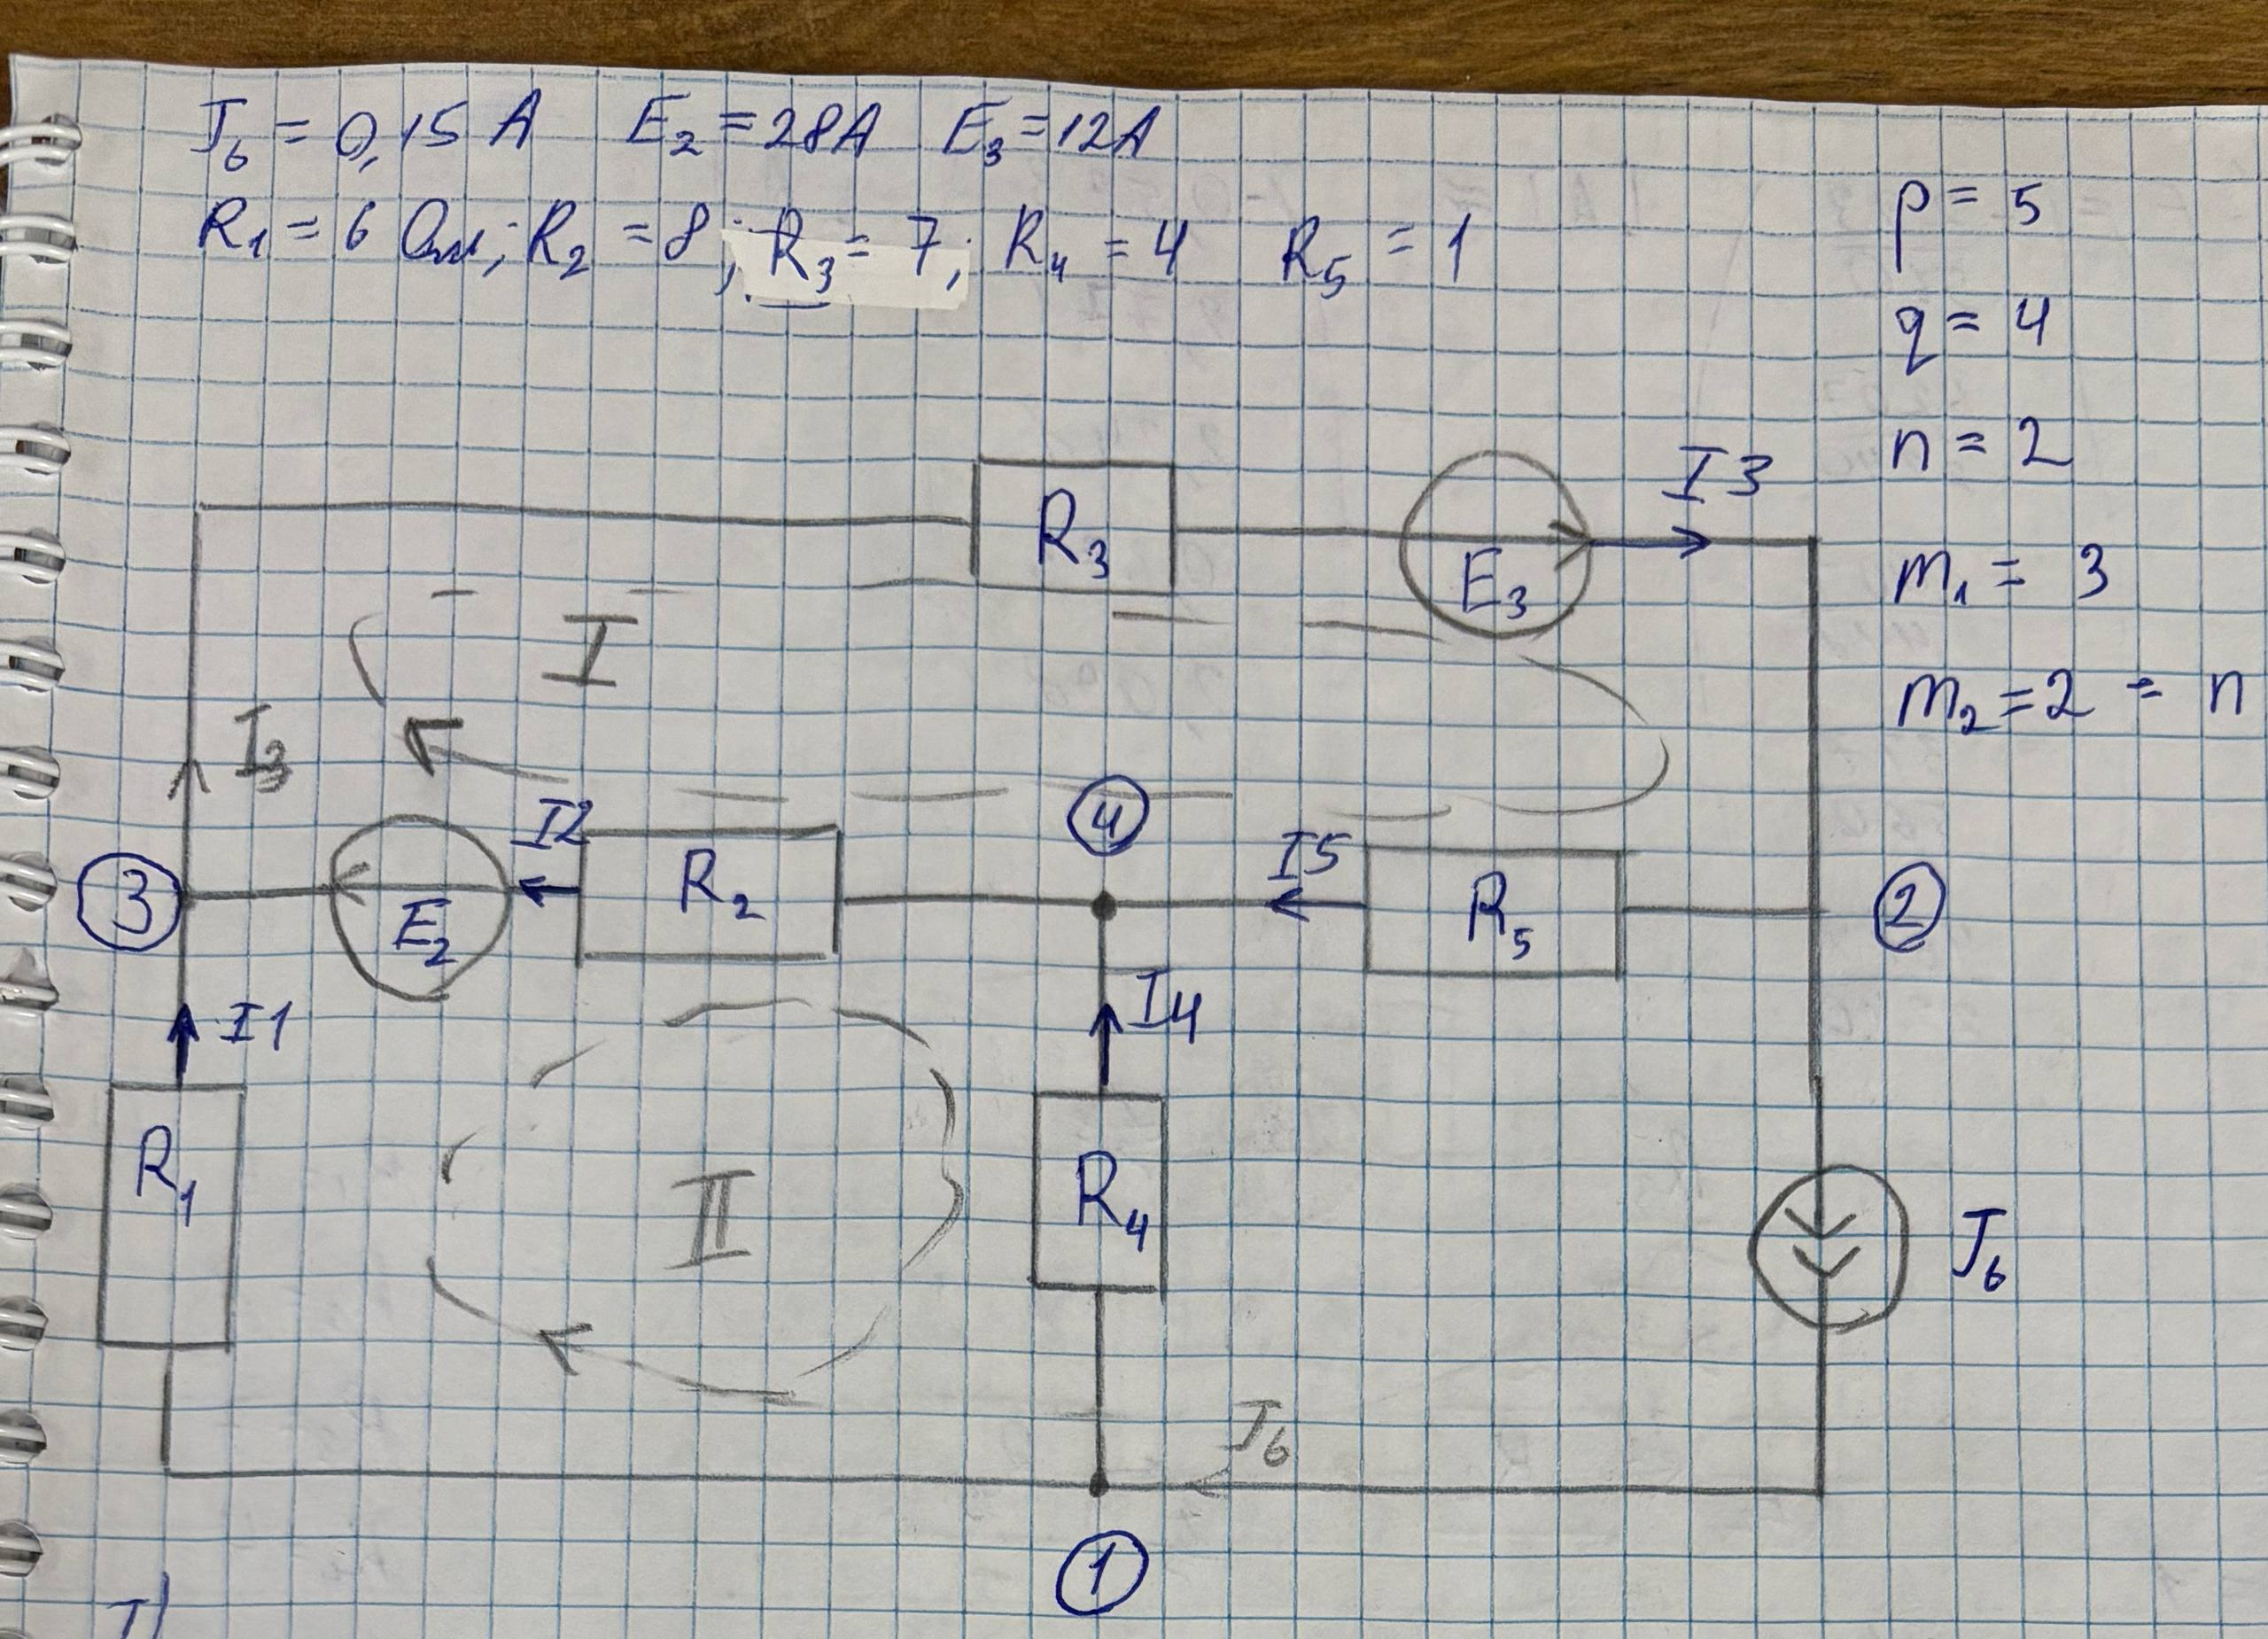 J₆ = 0,15 A   E₂ = 28A   E₃ = 12A
R₁ = 6 Ом; R₂ = 8; R₃ = 7; R₄ = 4   R₅ = 1
p = 5
q = 4
n = 2
m₁ = 3
m₂ = 2 = n
R₃
E₃
I3
I
I₃
3
E₂
I2
R₂
4
I5
R₅
2
I1
R₁
II
I4
R₄
J₆
J₆
1